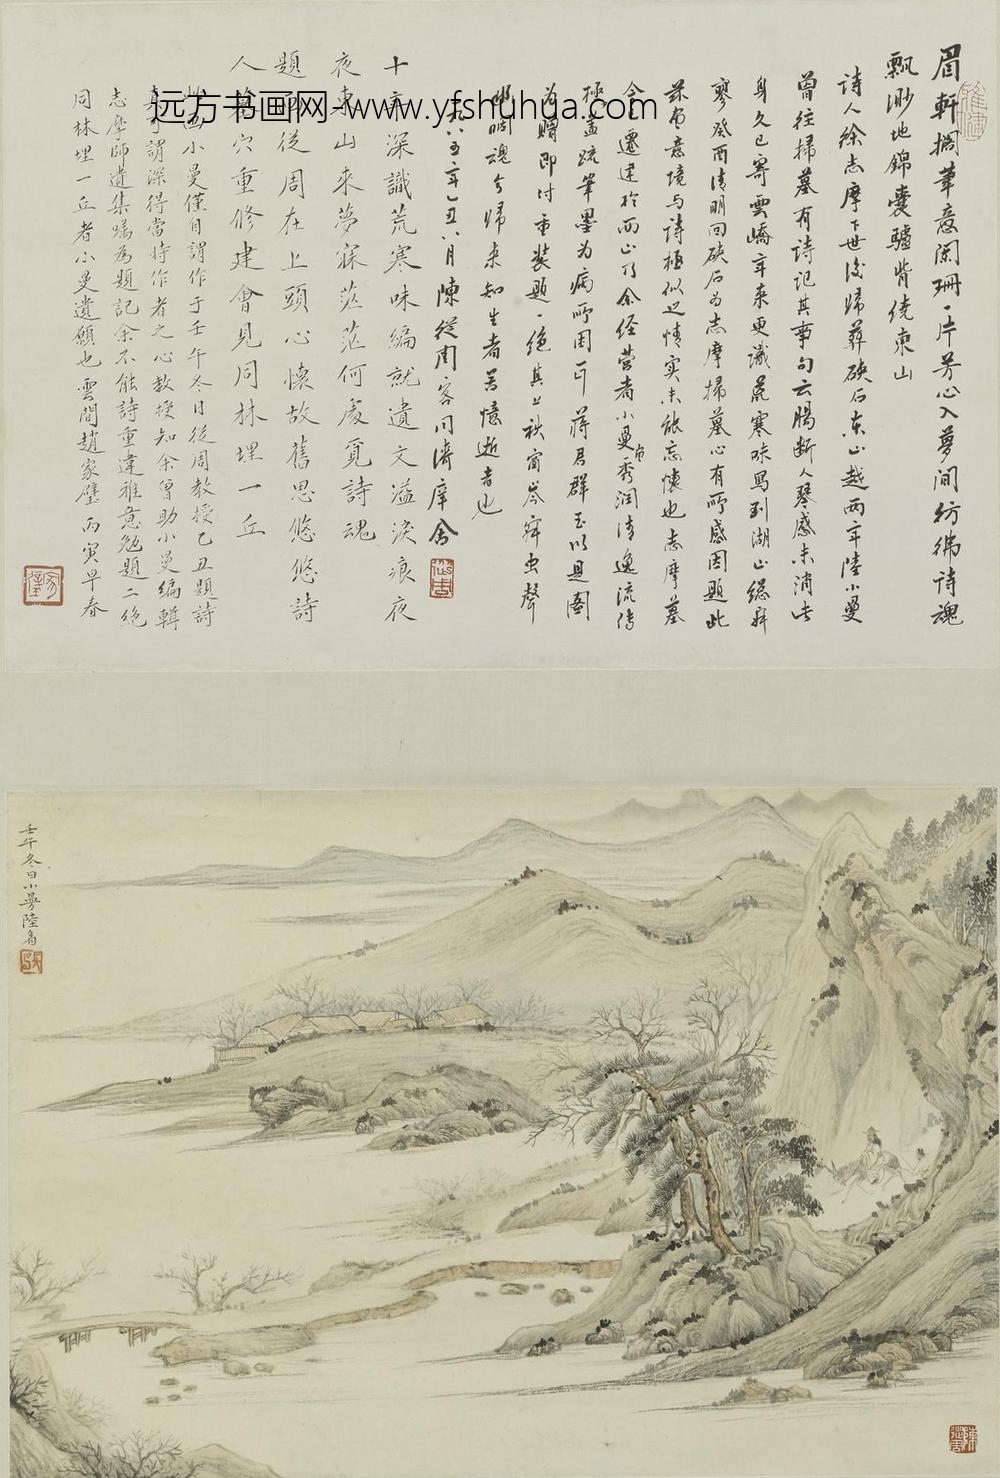 眉軒擱筆意闌珊一片芳心入夢間彷彿詩魂
飄渺地錦囊驢背繞東山
詩人徐志摩下世後歸葬硤石東山越兩年陸小曼
曾往掃墓有詩記其事句云腸斷人琴感未消此
身久已寄雲嶠年來更識荒寒味寫到湖山總寂
寥癸酉清明回硤石為志摩掃墓心有所感因題此
茲畫意境與詩極似足情實未能忘懷也志摩墓
今遷建於西山乃余經營者小曼畫秀潤清逸流傳
極 疏筆墨為病所困耳蔣君群玉以是圖
為贈即付重裝題一絕其上秋窗岑寂虫聲
 魂兮歸來知生者苦憶逝者也
一九八五年乙丑八月陳從周客同濟庠舍
十 深識荒寒味編就遺文溢淚痕夜
夜東山來夢寐茫茫何處覓詩魂
題 從周在上頭心懷故舊思悠悠詩
人 穴重修建會見同林埋一丘
此畫小曼僅自謂作于壬午冬日從周教授乙丑題詩
 謂深得當時作者之心教授知余曾助小曼編輯
志摩師遺集囑為題記余不能詩重違雅意勉題二絕
同林埋一丘者小曼遺願也雲間趙家璧丙寅早春
远方书画网-www.yfshuhua.com
壬午冬日小曼陸眉